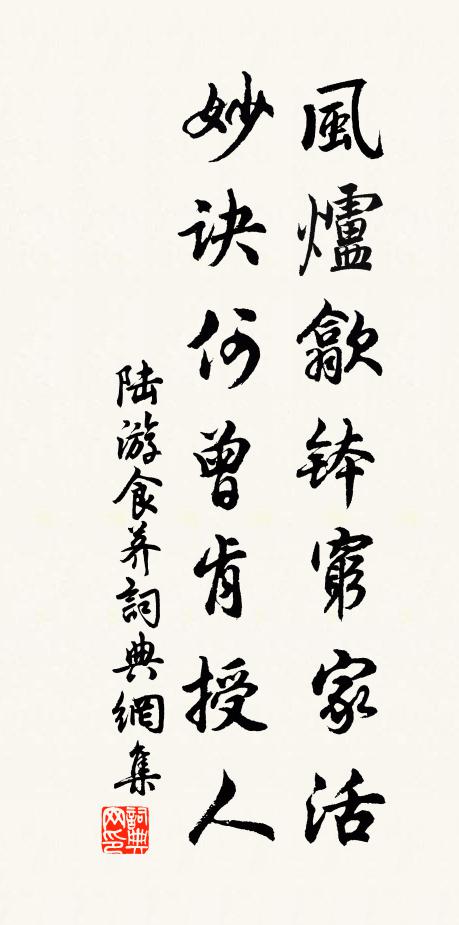 風爐歙缽窮家活
妙诀何曾肯授人
陆游食荠詞典網集
詞典
网印